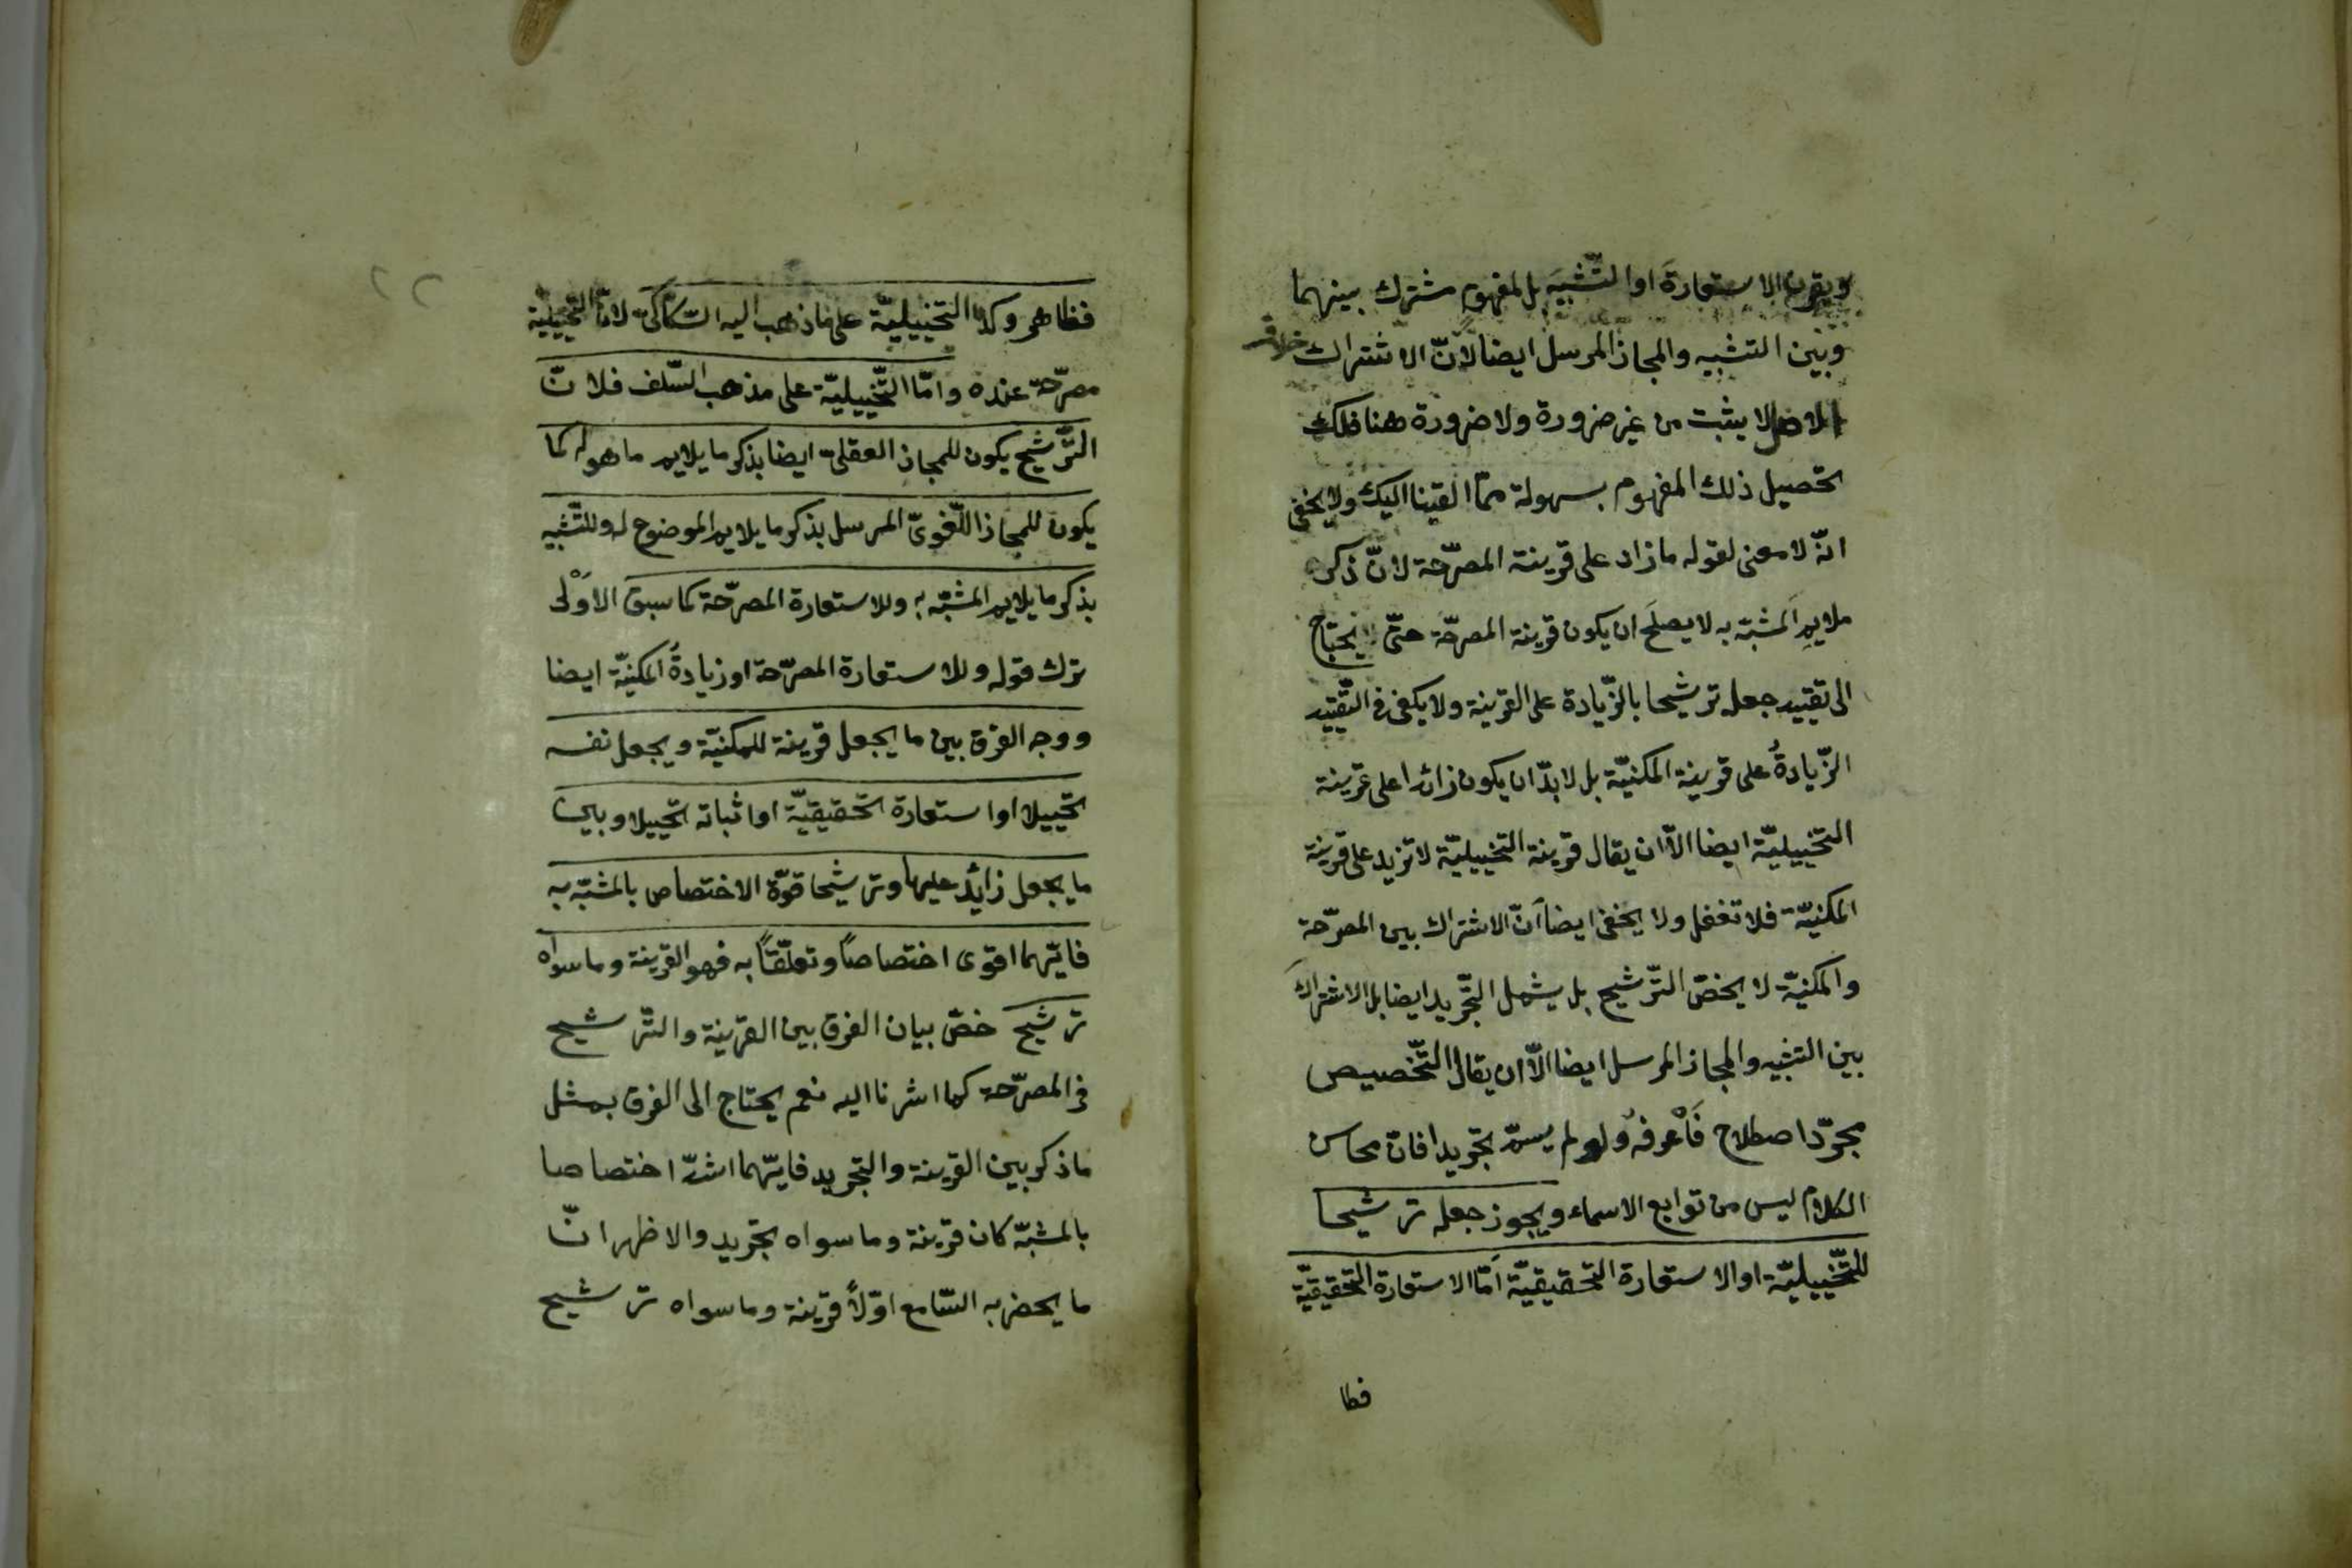 ويقرن الاستعارةَ او التّشبيهَ بل لمفهوم مشترك بينهما
وبين التشبيه والمجاز المرسل ايضا لانّ الاشتراك خلاف
الاصل لا يثبت من غير ضرورة ولا ضرورة هنا فلك
تحصيل ذلك المفهوم بسهولة ممّا القينا اليك ولا يخفى
انّه لا معنى لقوله ما زاد على قرينة المصرّحة لانّ ذكر
ملايمِ المشبّه به لا يصلح ان يكون قرينة المصرّحة حتّى يحتاج
الى تقييد جعله ترشيحا بالزّيادة على القرينة ولا يكفى فى التّقييد
الزّيادةُ على قرينة المكنيّة بل لا بدّ ان يكون زائدا على قرينة
التخييليّة ايضا الّا ان يقال قرينة التخييليّة لا تزيد على قرينة
المكنيّة فلا تغفل ولا يخفى ايضا انّ الاشتراك بين المصرّحة
والمكنيّة لا يخصّ التّرشيح بل يشمل التّجريد ايضا بل الاشتراك
بين التشبيه والمجاز المرسل ايضا الّا ان يقال التّخصيص
مجرّد اصطلاح فَاْعرفه ولو لم يسمّ تجريدا فانّ محاسن
الكلام ليس من توابع الاسماء ويجوز جعله ترشيحا
للتّخييليّة او الاستعارة التحقيقيّة امّا الاستعارة التحقيقيّة
فظا
٢٢
فظاهر وكذا التخييليّة على ما ذهب اليه السّكاكىّ لانّ التّخييليّة
مصرّحة عنده وامّا التّخييليّة على مذهب السّلف فلانّ
التّرشيح يكون للمجاز العقلىّ ايضا بذكر ما يلايم ما هو له كما
يكون للمجاز اللّغوىّ المرسل بذكر ما يلايم الموضوع له وللتّشبيه
بذكر ما يلايم المشبّه به وللاستعارة المصرّحة كما سبق الاَوْلى
ترك قوله وللاستعارة المصرّحة او زيادةُ المكنيّة ايضا
ووجه الفرق بين ما يجعل قرينة للمكنيّة ويجعل نفسه
تخييلا او استعارة تحقيقيّة او اثباته تخييلا وبين
ما يجعل زائد عليها وترشيحا قوّة الاختصاص بالمشبّه به
فايّهما اقوى اختصاصاً وتعلّقاً به فهو القرينة وما سواه
ترشيح خصّ بيان الفرق بين القرينة والتّرشيح
فى المصرّحة كما اشرنا اليه نعم يحتاج الى الفرق بمثل
ما ذكر بين القرينة والتجريد فايّهما اشدّ اختصاصا
بالمشبّه كان قرينة وما سواه تجريد والاظهر انّ
ما يحضر به السّامع اوّلاً قرينة وما سواه ترشيح